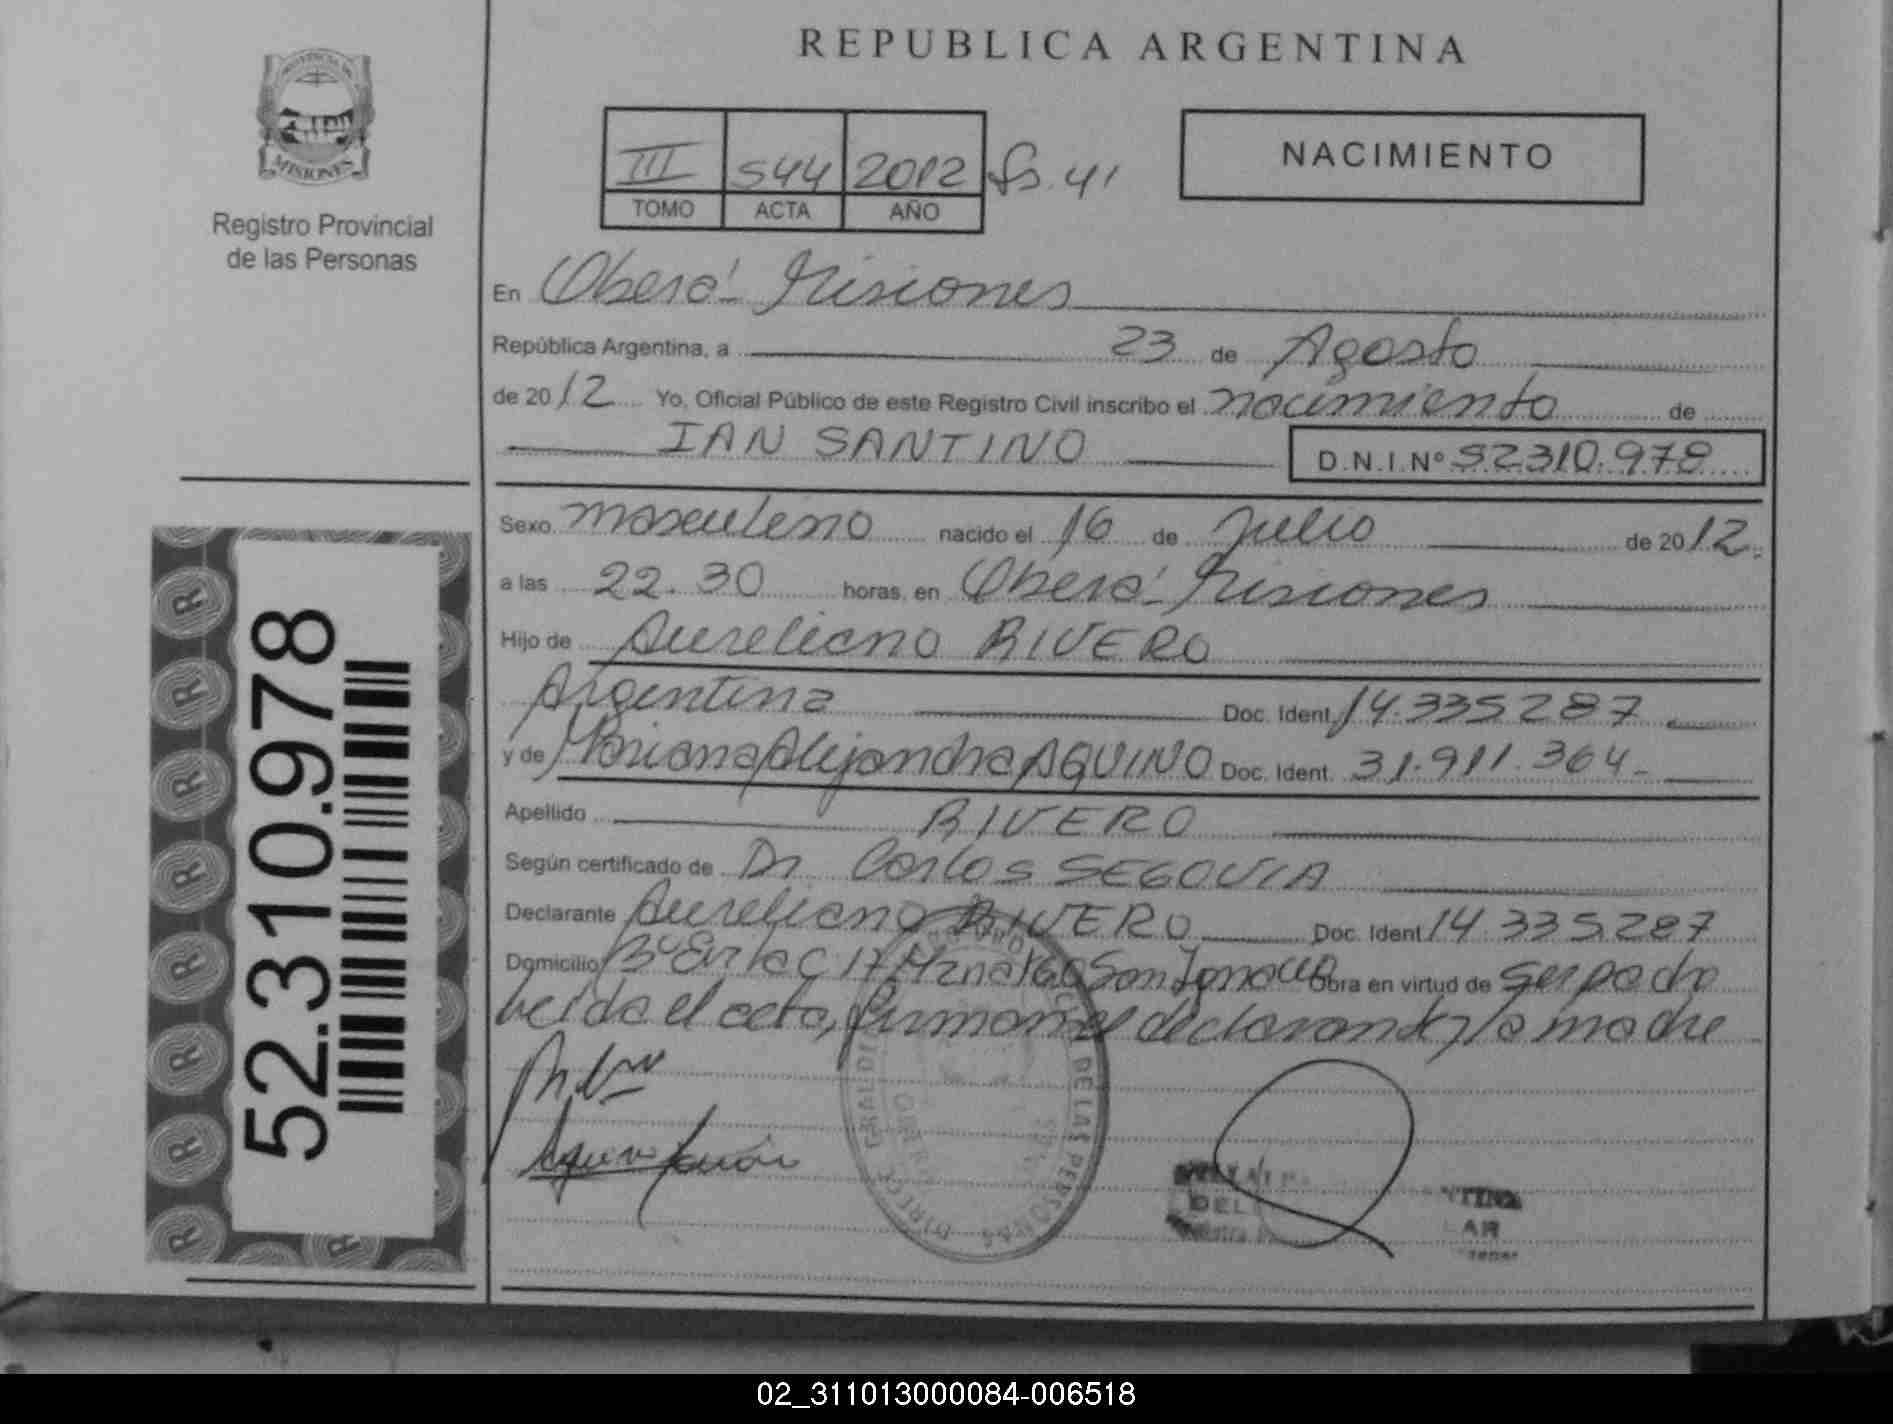 REPUBLICA ARGENTINA
PROVINCIA DE
MISIONES
Registro Provincial
de las Personas
III 544 2012 fs. 41
TOMO ACTA AÑO
NACIMIENTO
En Oberá - Misiones
República Argentina, a 23 de Agosto
de 2012 Yo, Oficial Público de este Registro Civil inscribo el nacimiento de
IAN SANTINO D.N.I.Nº 52310.978
Sexo masculino nacido el 16 de Julio de 2012.
a las 22.30 horas, en Oberá - Misiones
Hijo de Aureliano RIVERO
Argentina Doc. Ident. 14.335287
y de Mariana Alejandra AQUINO Doc. Ident. 31.911.364-
Apellido RIVERO
Según certificado de Dr Carlos SEGOVIA
Declarante Aureliano RIVERO Doc. Ident 14.335.287
Domicilio Bº C 17 San Ignacio Obra en virtud de ser padre
leida el acta, firman el declarante y la madre
DE LAS PERSONAS
52.310.978
02_311013000084-006518